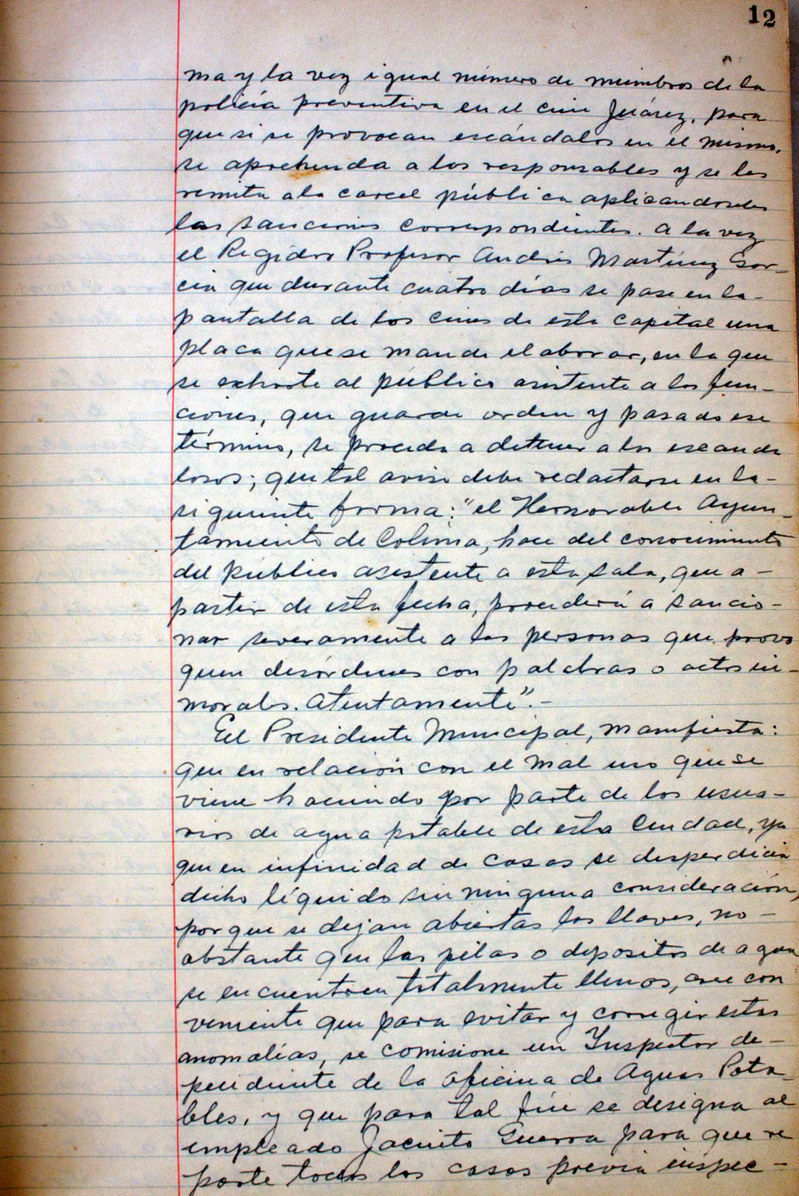 12
ma y la vez igual número de miembros de la
policía preventiva en el cine Juárez, para
que si se provocan escándalos en el mismo,
se aprehenda a los responsables y se les
remita a la carcel pública aplicandoseles
las sanciones correspondientes. A la vez
el Regidro Profesor Andrés Martínez Gar-
cía que durante cuatro días se pase en la-
pantalla de los cines de esta capital una
placa que se mande elaborar, en la que
se exhorte al público asistente a las fun-
ciones, que guarde orden y pasado ese
término, se proceda a detener a los escanda
losos; que tal aviso debe redactarse en la-
siguiente forma: "el Honorable Ayun-
tamiento de Colima, hace del conocimiento
del público asistente a esta sala, que a-
partir de esta fecha, procederá a sancio-
nar severamente a las personas que provo
quen desórdenes con palabras o actos in-
morales. Atentamente".-
El Presidente Municipal, manifiesta:
que en relación con el mal uso que se
viene haciendo por parte de los usua-
rios de agua potable de esta Ciudad, ya
que en infinidad de casos se desperdicia
dicho líquido sin ninguna consideración,
porque se dejan abiertas las llaves, no-
obstante que las pilas o depositos de agua
se encuentren totalmente llenos, cree con
veniente que para evitar y corregir estas
anomalías, se comisione un Inspector de-
pendiente de la oficina de Aguas Pota-
bles, y que para tal fín se designa al
empleado Jacinto Guerra para que re
porte todos los casos previa inspec-